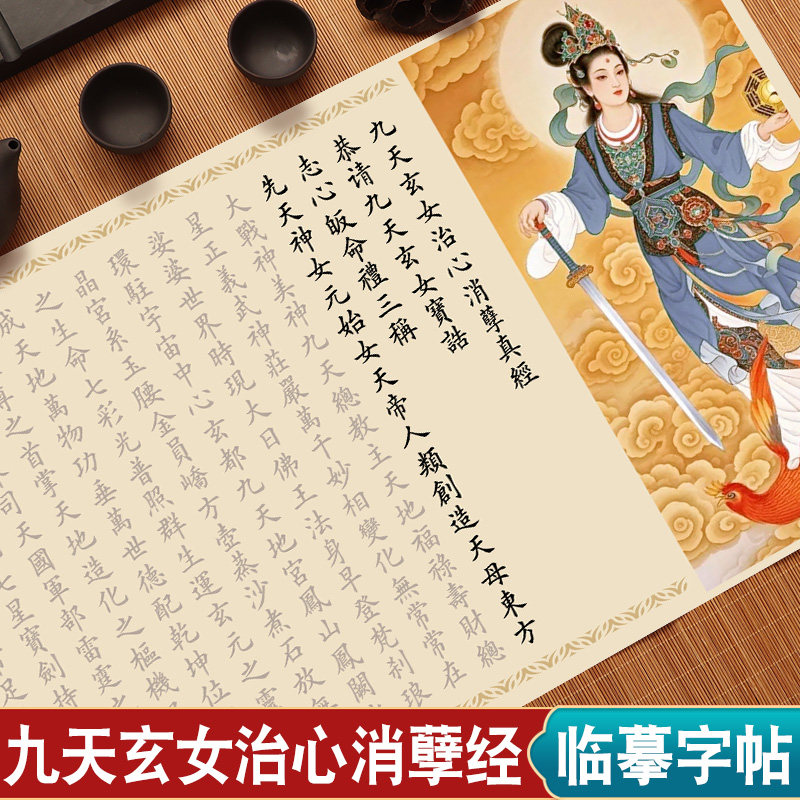 九天玄女治心消孽真經
恭请九天玄女寶誥
志心皈命禮三稱
先天神女元始女天帝人類創造天母東方
大戰神美神九天總教主天地福祿壽財總
星正義武神莊嚴萬千妙相變化無常常在
娑婆世界時現大日佛王法身早登梵刹琅
環駐宇宙中心玄都九天地宮鳳山鳳闕
晶宮系玉腰金員嶠方壺蒸沙煮石放無
之生命七彩光普照群生運玄元之靈
成天地萬物功垂萬世德配乾坤位
尊之首掌天地造化之樞機
司天國軍部雷霆
七星寶劍持
足
九天玄女治心消孽经
临摹字帖